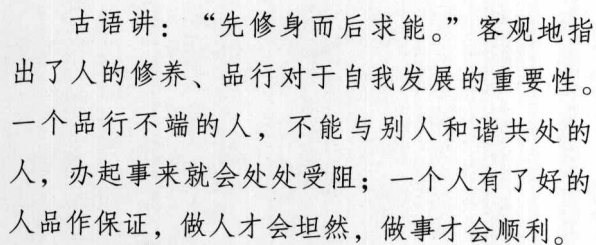 古语讲：“先修身而后求能。”客观地指
出了人的修养、品行对于自我发展的重要性。
一个品行不端的人，不能与别人和谐共处的
人，办起事来就会处处受阻；一个人有了好的
人品作保证，做人才会坦然，做事才会顺利。